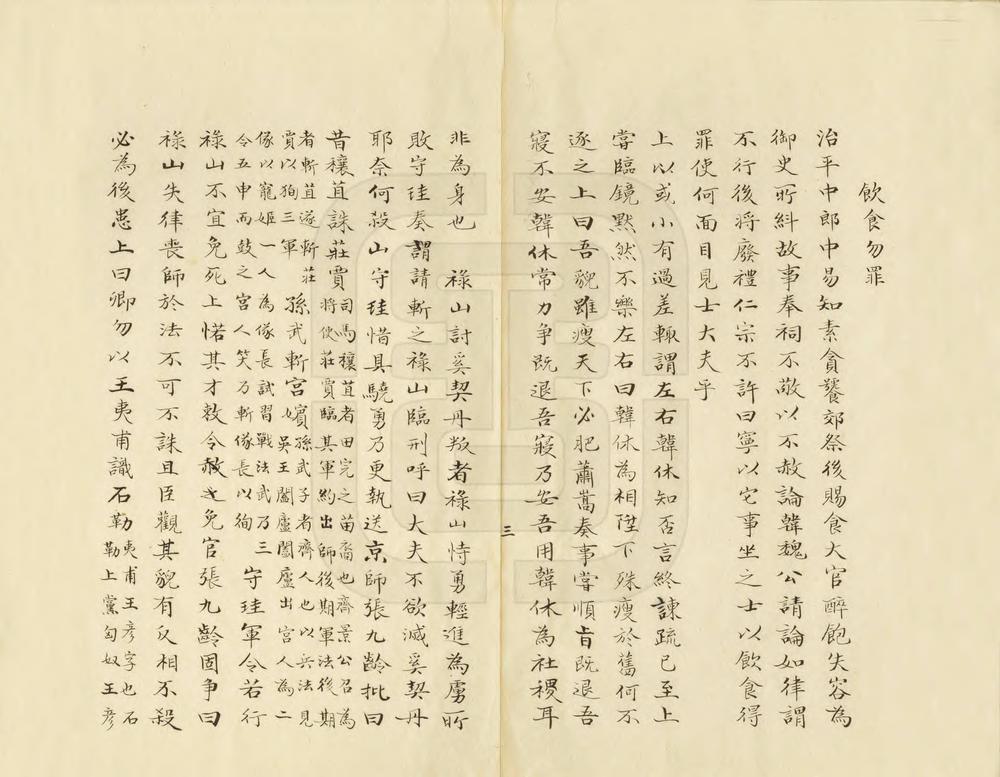 飲食勿罪
治平中郎中易知素貪饕郊祭後賜食大官醉飽失容為
御史所糾故事奉祠不敬以不赦論韓魏公請論如律謂
不行後將廢禮仁宗不許曰寧以它事坐之士以飲食得
罪使何面目見士大夫乎
上以或小有過差輒謂左右韓休知否言終諫疏已至上
嘗臨鏡默然不樂左右曰韓休為相陛下殊瘦於舊何不
逐之上曰吾貌雖瘦天下必肥蕭嵩奏事嘗順旨既退吾
寢不安韓休常力争既退吾寢乃安吾用韓休為社稷耳
三
非為身也　祿山討奚契丹叛者祿山恃勇輕進為虜所
敗守珪奏謂請斬之祿山臨刑呼曰大夫不欲滅奚契丹
耶奈何殺山守珪惜具驍勇乃更執送京師張九齡批曰
昔穰苴誅莊賈司馬穰苴者田完之苗裔也齊景公召為
將使莊賈臨其軍約出師後期軍法後期
者斬苴遂斬莊
賈以狥三軍孫武斬宮嬪孫武子者齊人也以兵法見
吳王闔廬闔廬出宮人為二
隊以寵姬一人為隊長試習戰法武乃三
令五申而鼓之宮人笑乃斬隊長以徇守珪軍令若行
祿山不宜免死上惜其才敕令赦之免官張九齡固争曰
祿山失律喪師於法不可不誅且臣觀其貌有反相不殺
必為後患上曰卿勿以王夷甫識石勒夷甫王彥字也石
勒上黨匈奴王彥